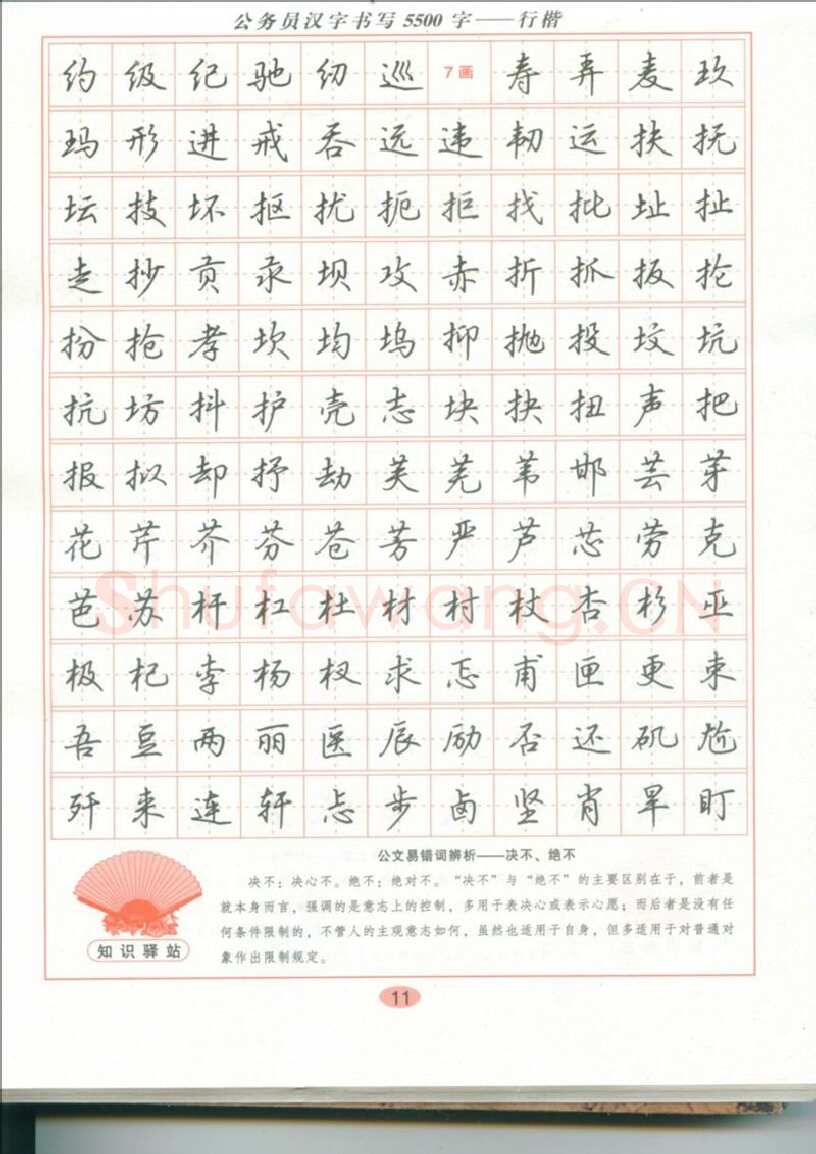 公务员汉字书写5500字——行楷
约 级 纪 驰 纫 巡 7画 寿 弄 麦 玖
玛 形 进 戒 吞 远 违 韧 运 扶 抚
坛 技 坏 抠 扰 扼 拒 找 批 址 扯
走 抄 贡 汞 坝 攻 赤 折 抓 扳 抡
扮 抢 孝 坎 均 坞 抑 抛 投 坟 坑
抗 坊 抖 护 壳 志 块 抉 扭 声 把
报 拟 却 抒 劫 芙 芜 苇 邯 芸 芽
花 芹 芥 芬 苍 芳 严 芦 芯 劳 克
芭 苏 杆 杠 杜 材 村 杖 杏 杉 巫
极 杞 李 杨 杈 求 忑 甫 匣 更 束
吾 豆 两 丽 医 辰 励 否 还 矶 尬
歼 来 连 轩 忐 步 卤 坚 肖 旱 盯
Shufawang.CN
公文易错词辨析——决不、绝不
决不：决心不。绝不：绝对不。“决不”与“绝不”的主要区别在于，前者是
就本身而言，强调的是意志上的控制，多用于表决心或表示心愿；而后者是没有任
何条件限制的，不管人的主观意志如何，虽然也适用于自身，但多适用于对普通对
象作出限制规定。
知识驿站
11